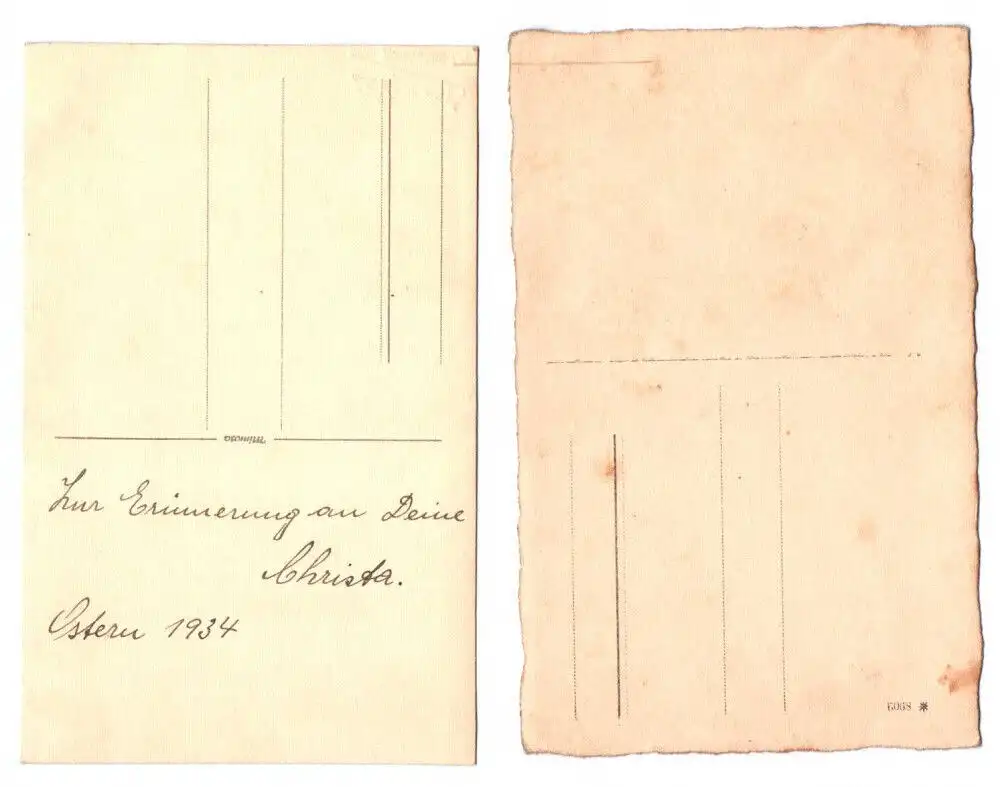 Mimosa
Zur Erinnerung an Deine
Christa.
Ostern 1934
6068